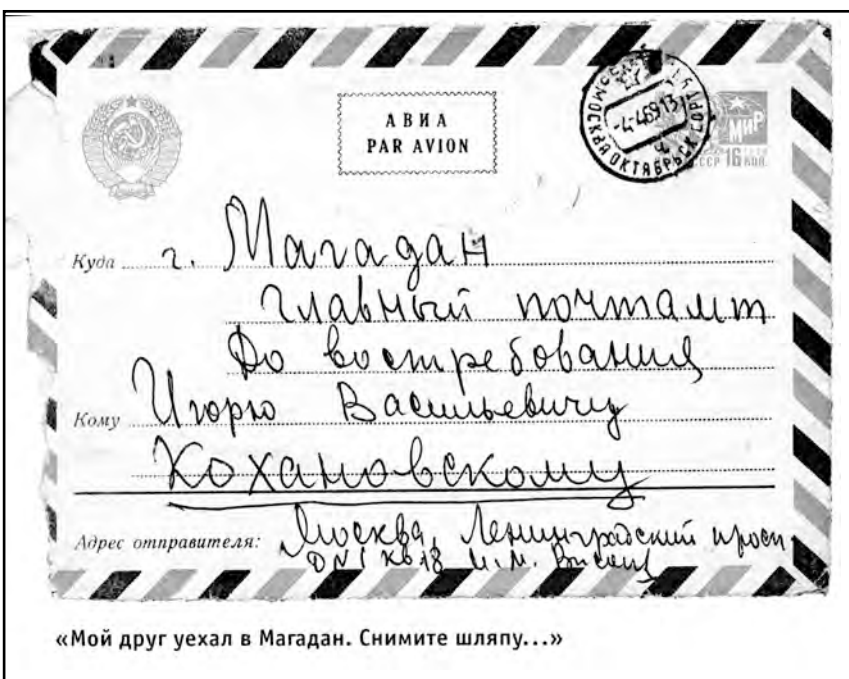 АВИА
PAR AVION
МОСКВА ОКТЯБРЬСК
-4-4 69 13
МИР
СССР 16 коп.
Куда г. Магадан
главный почтамт
До востребования
Кому Игорю Васильевичу
Кохановскому
Адрес отправителя: Москва, Ленинградский просп
кв 18
«Мой друг уехал в Магадан. Снимите шляпу...»